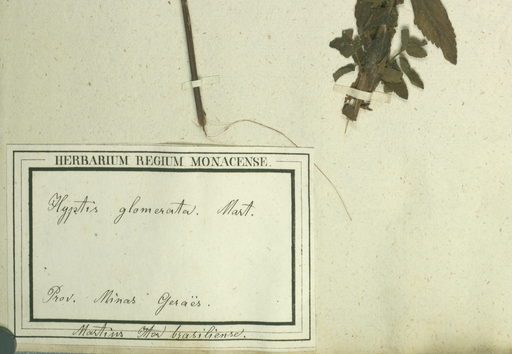 HERBARIUM REGIUM MONACENSE.
Hyptis glomerata. Mart.
Prov. Minas Geraës.
Martius Iter brasiliense.